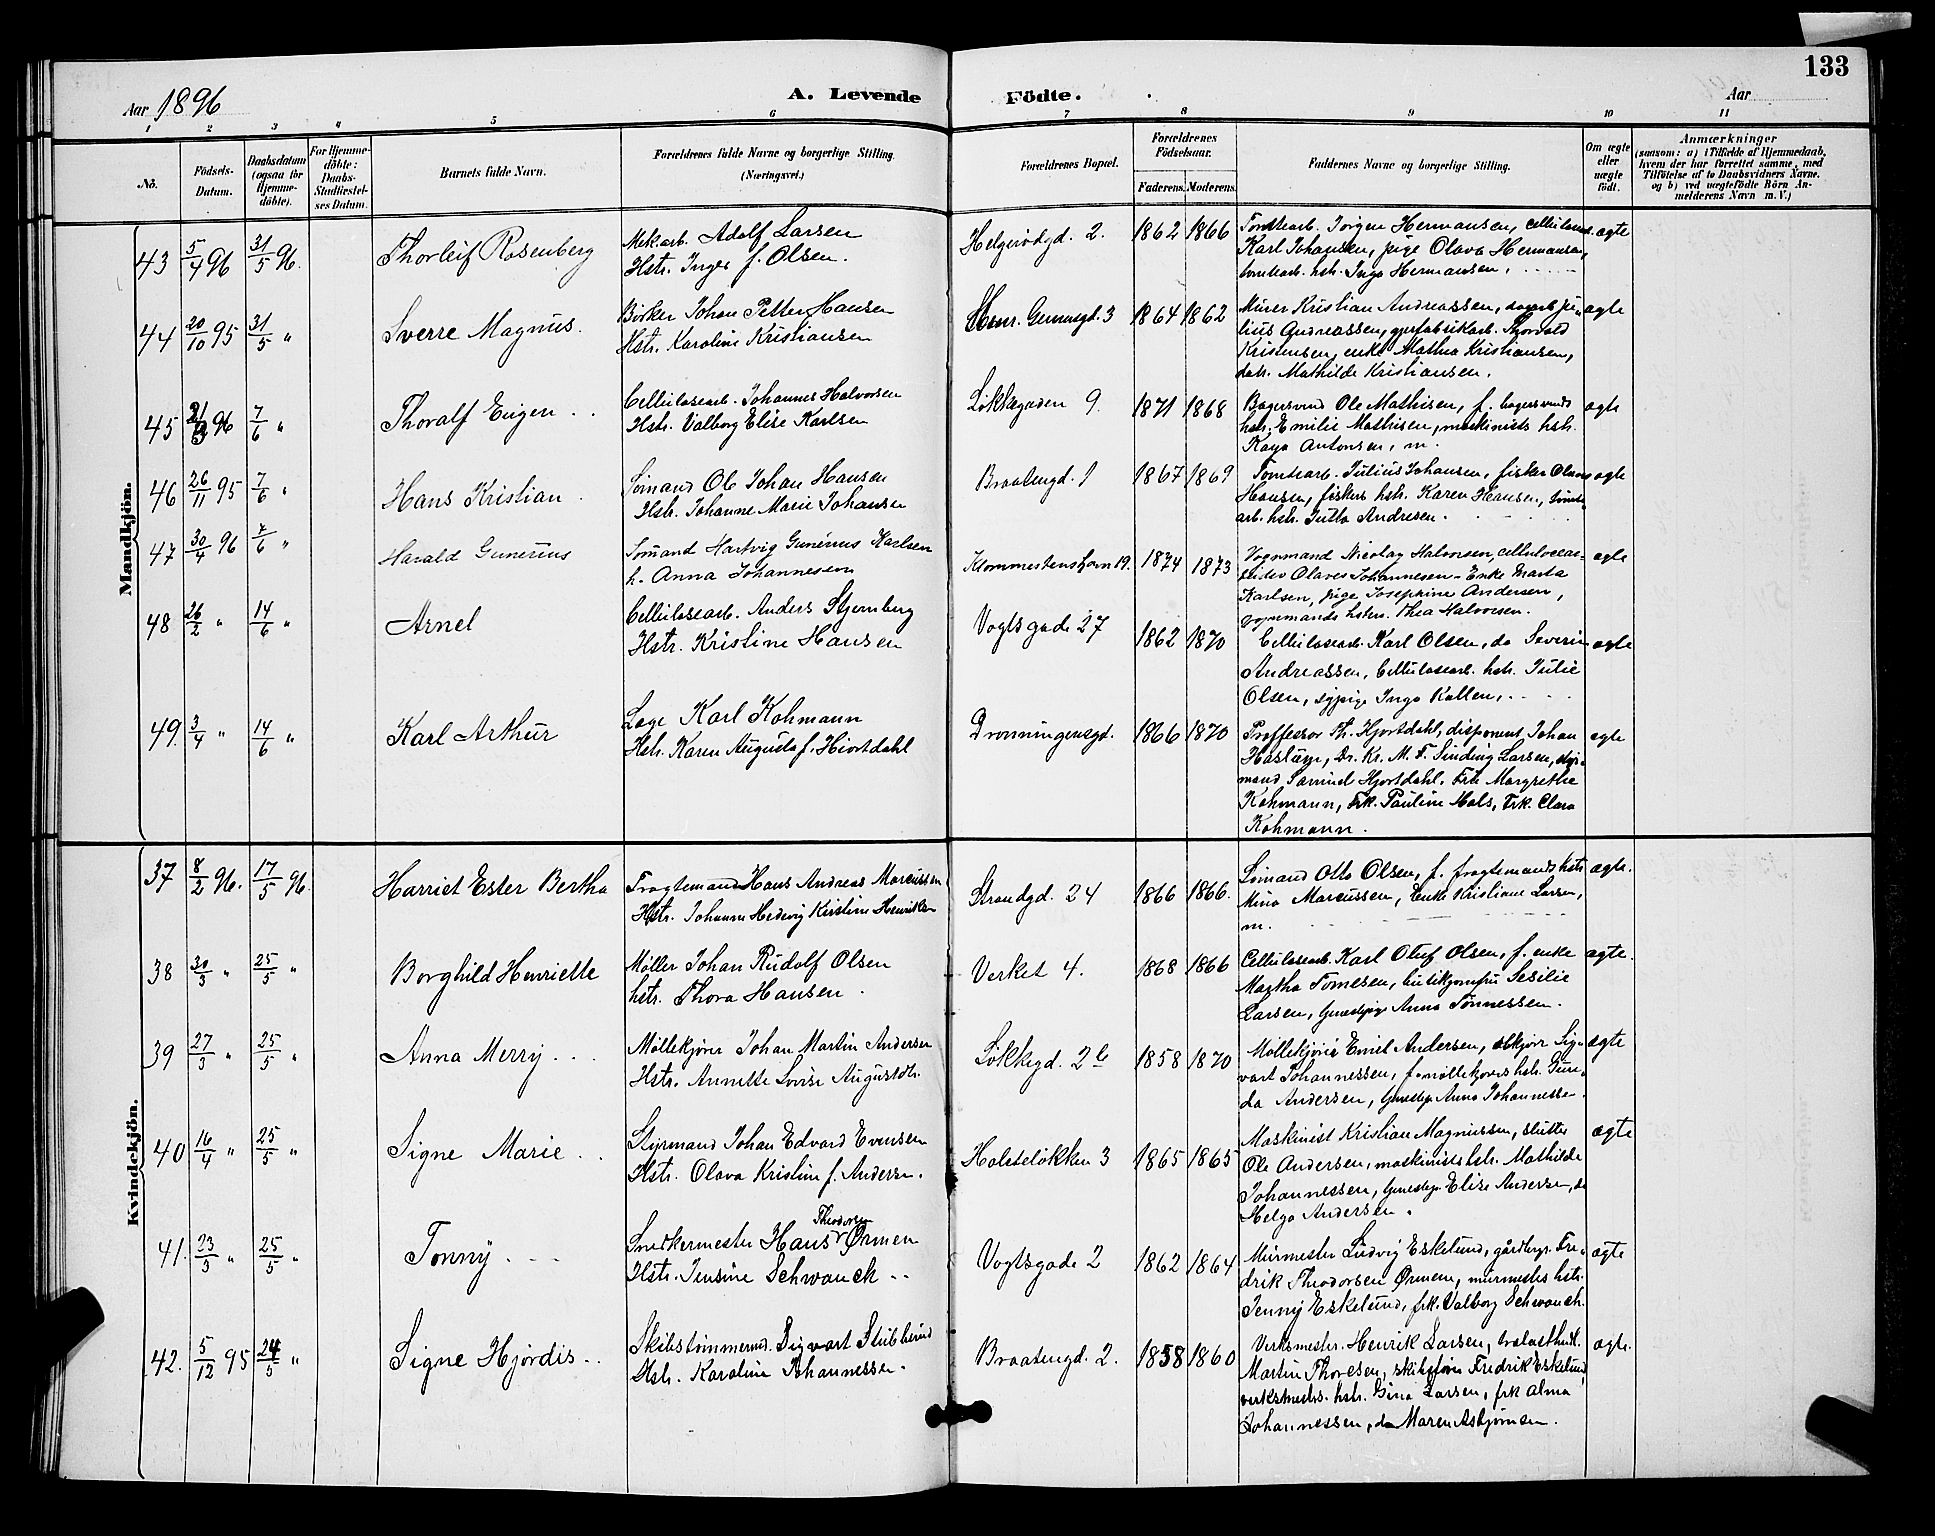 133
Aar 1896
A. Levende
Födte.
Aar
1 2 3 4 5 6 7 8 9 10 11
No.
Födsels-Datum.
Daabsdatum (ogsaa for Hjemmedöbte).
For Hjemmedöbte: Daabs-Stadfæstelses Datum.
Barnets fulde Navn.
Forældrenes fulde Navne og borgerlige Stilling. (Næringsvei.)
Forældrenes Bopæl.
Forældrenes Födselsaar.
Faderens. Moderens.
Faddernes Navne og borgerlige Stilling.
Om ægte eller uægte födt.
Anmærkninger
(saasom: a) i Tilfælde af Hjemmedaab, hvem der har forrettet samme, med Tilföielse af to Daabsvidners Navne. og b) ved uægtefödte Börn Anmelderens Navn m. V.)
Mandkjön.
43 5/4 96 31/5 96. Thorleif Rosenberg
Mek.arb. Adolf Larsen
Hstr. Inger f. Olsen.
Helgerødgd. 2. 1862 1866
Tomtearb. Jörgen Hermansen, cellulosea.
Karl Johansen, pige Olava Hermansen,
tomtearb. hstr. Inga Hermansen.
ægte
44 20/10 95 31/5 " Sverre Magnus.
Birker Johan Petter Hansen
Hstr. Karoline Kristiansen
Henr. Gernersgd. 3 1864 1862
Murer Kristian Andreassen,
lius Andreassen, Thorvald
Kristensen, enke Mathea Kristiansen,
datr. Mathilde Kristiansen.
ægte
45 96 7/6 " Thoralf Eugen
Cellulosearb. Johannes Halvorsen
Hstr. Valborg Elise Karlsen
Løkkegaden 9. 1871 1868
Bagersvend Ole Mathisen, f. bagersvends
hstr. Emilie Mathisen, maskinists hstr.
Kaja Antonsen, m.
ægte
46 26/11 95 7/6 " Hans Kristian
Sømand Ole Johan Hansen
Hstr. Johanne Marie Johansen
Braatengd. 1 1867 1869
Tomtearb. Julius Johansen, fisker Olaves
Hansen, fiskers hstr. Karen Hansen, tomte-
arb. hstr. Jutta Andresen.
ægte
47 30/4 96 7/6 " Harald Gunerius
Sømand Hartvig Gunerius Karlsen
h. Anna Johannesen
19. 1874 1873
Vognmand Nicolay Halvorsen,
Olaves Johannesen - Enke Marta
Karlsen, pige Josephine Andersen,
vognmands hstru. Thea Halvorsen.
ægte
48 26/2 " 14/6 " Arnel
Cellulosearb. Anders Stjernberg
Hstr. Kristine Hansen
Vogtsgade 27 1862 1870
Cellulosearb. Karl Olsen, do Severin
Andreassen, Cellulosearb. hstr. Julie
Olsen, sypige Inga Kullen,
ægte
49. 3/4 " 14/6 " Karl Arthur
Læge Karl Kohmann
Hstr. Karen Augusta f. Hiortdahl
Dronningensgd. 1866 1870
Proffessor Th. Hjortdahl, disponent Johan
Hastum, Dr. Kr. M. F. Sinding Larsen, styr-
mand Samuel Hjortdahl. Frk Margrethe
Kohmann, Frk. Pauline Hals, Frk. Clara
Kohmann.
ægte
Kvindekjön.
37 8/2 96. 17/5 96. Harriet Ester Bertha
Fragtemand Hans Andreas Marcussen
Hstr. Johanne Hedevig Kristine Henriksen
Strandgd. 24 1866 1866.
Sømand Otto Olsen, f. fragtemands hstr.
Mina Marcussen, Enke Kristiane Larsen,
m.
ægte.
38 30/3 " 25/5 " Borghild Henriette
Møller Johan Rudolf Olsen
hstr. Thora Hansen.
Verket 4. 1868 1866
Cellulosearb. Karl Oluf Olsen, f. enke
Martha Tomesen, butikjomfru Sesilie
Larsen, Anna Tønnessen.
ægte.
39 27/3 " 25/5 " Anna Merry
Møllekjører Johan Martin Andersen
Hstr. Annette Lovise Augustdtr.
Løkkegd. 2b 1858 1870
Møllekjører Emil Andersen, Sig-
vart Johannessen, f. møllekjørers hstr. Guri-
da Andersen, Anna Johannessen.
ægte
40 16/4 " 25/5 " Signe Marie
Styrmand Johan Edvard Evensen
Hstr. Olava Kristine f. Andersen.
Holsteløkken 3 1865 1865
Maskinist Kristian Magnussen,
Ole Andersen, maskinists hstr. Mathilde
Johannessen, Elise Andersen, do
Helga Andersen.
ægte
41. 23/3 " 25/5 " Tonny
Snedkermester Hans Theodorsen Ørmen
Hstr. Jensine Schwanck
Vogtsgade 2 1862 1864
Murmester Ludvig Eskelund, gårdbrgr. Fre-
drik Theodorsen Ørmen, murmesters hstr.
Jenny Eskelund, frk. Valborg Schwanck.
ægte
42. 5/12 95 24/5 " Signe Hjørdis
Skibstømmermd. Sigvart Stubberud
Hstr. Karoline Johannessen.
Braatengd. 2. 1858 1860
Verksmester. Henrik Larsen, trælasthndl.
Martin Thoresen, skibsfører Fredrik Eskelund,
verksmests. hstr. Gina Larsen, frk Alma
Johannessen, do Maren Asbjørnsen.
ægte.